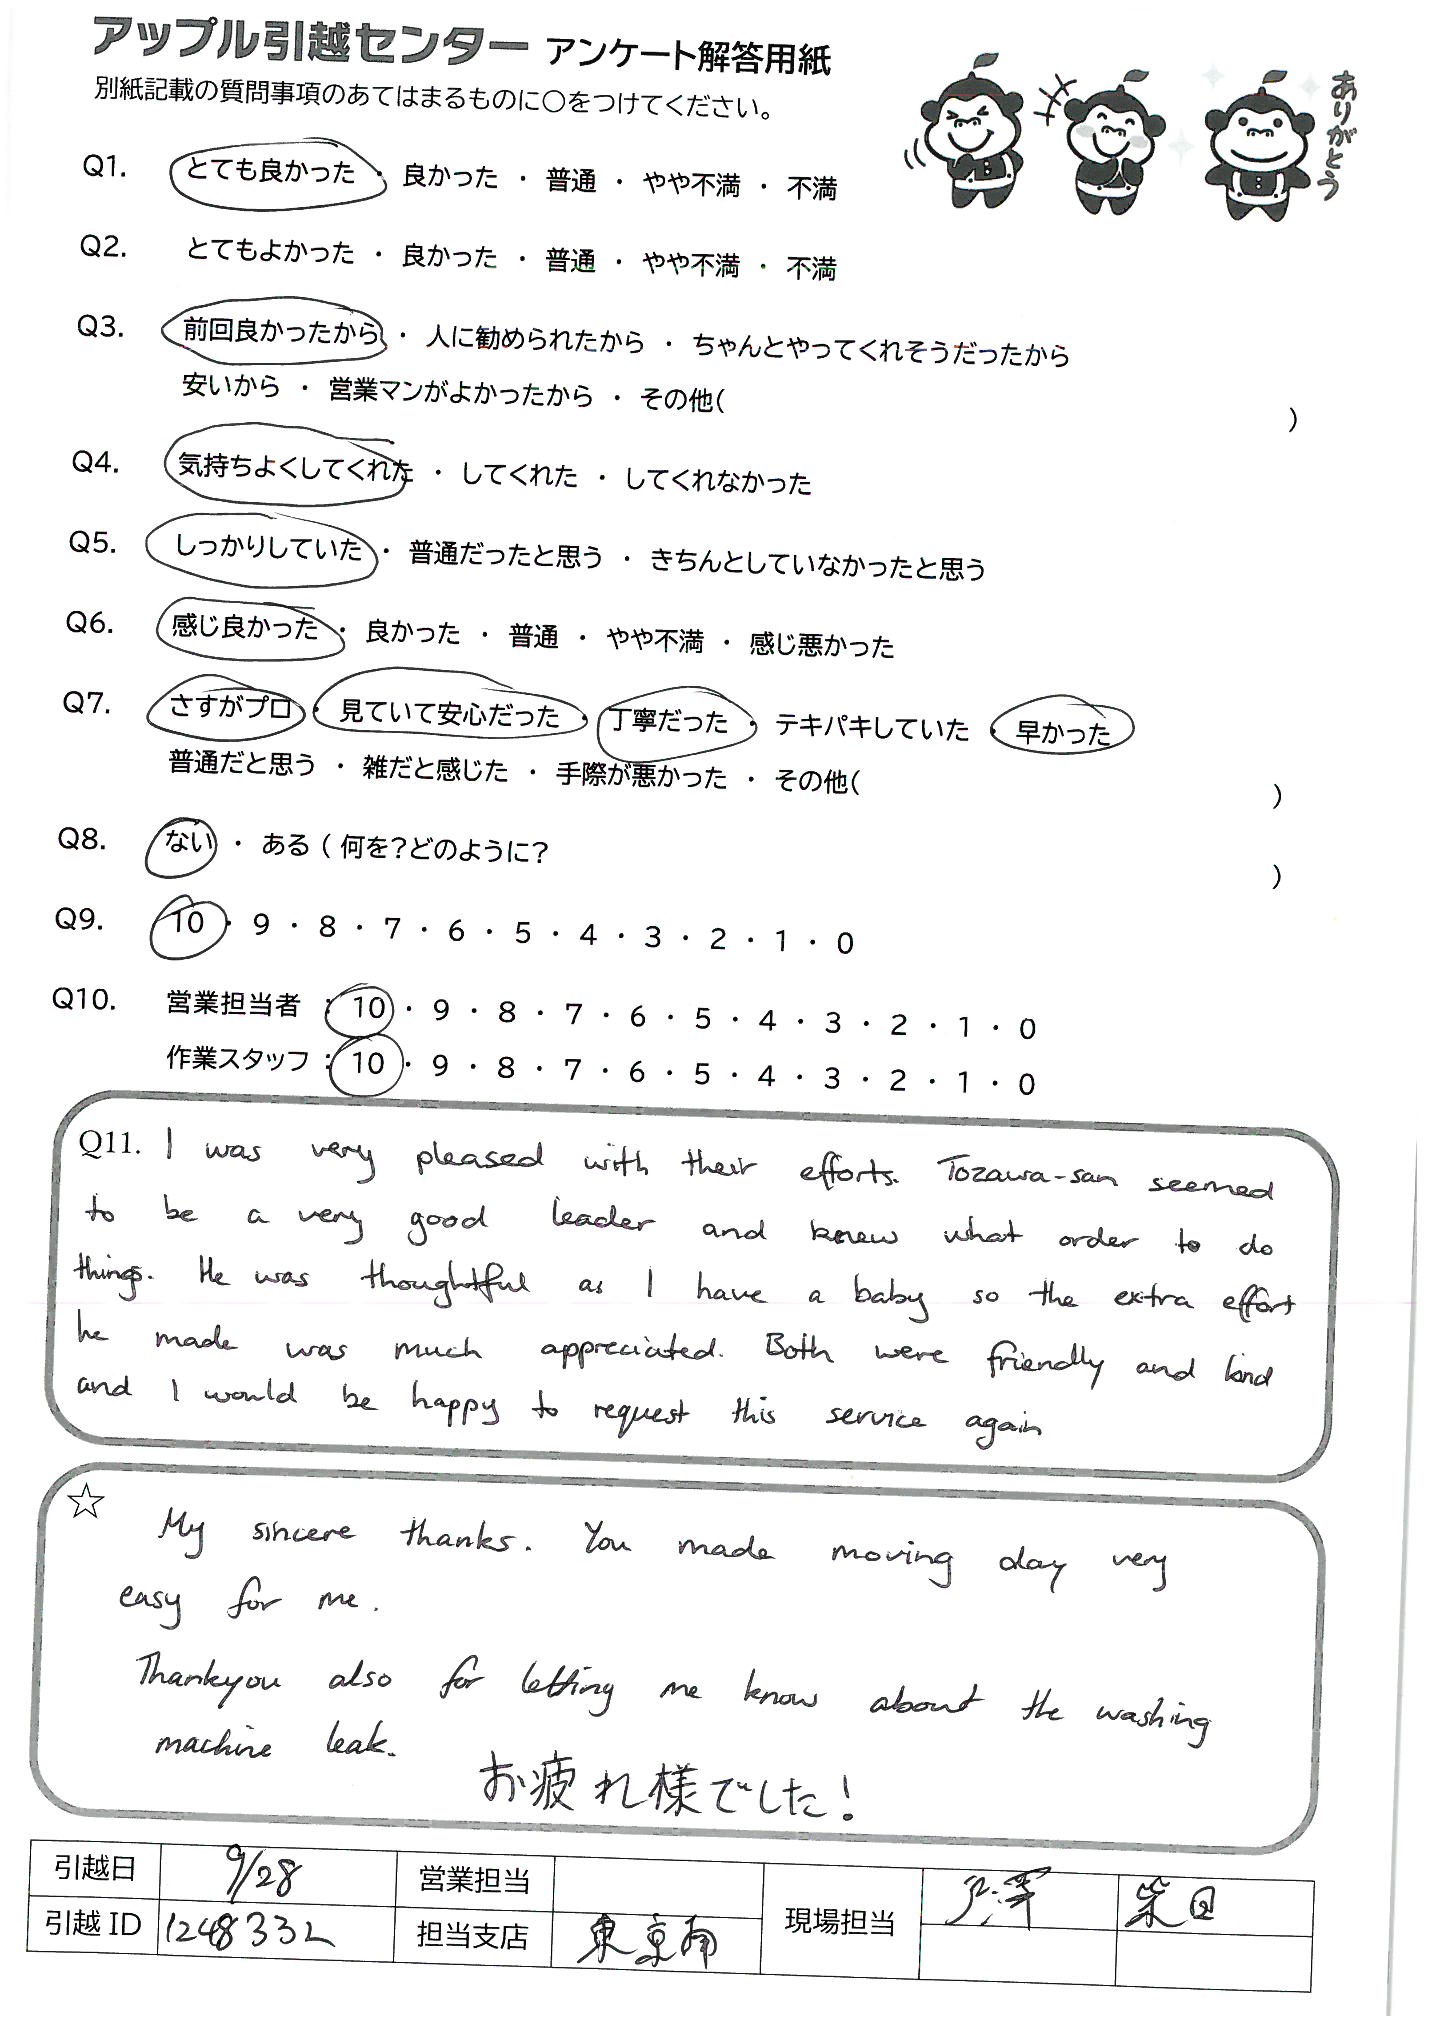 アップル引越センター アンケート解答用紙
別紙記載の質問事項のあてはまるものに○をつけてください。
ありがとう
Q1. とても良かった ・ 良かった ・ 普通 ・ やや不満 ・ 不満
Q2. とてもよかった ・ 良かった ・ 普通 ・ やや不満 ・ 不満
Q3. 前回良かったから ・ 人に勧められたから ・ ちゃんとやってくれそうだったから
安いから ・ 営業マンがよかったから ・ その他( )
Q4. 気持ちよくしてくれた ・ してくれた ・ してくれなかった
Q5. しっかりしていた ・ 普通だったと思う ・ きちんとしていなかったと思う
Q6. 感じ良かった ・ 良かった ・ 普通 ・ やや不満 ・ 感じ悪かった
Q7. さすがプロ ・ 見ていて安心だった ・ 丁寧だった ・ テキパキしていた ・ 早かった
普通だと思う ・ 雑だと感じた ・ 手際が悪かった ・ その他( )
Q8. ない ・ ある ( 何を?どのように? )
Q9. 10 ・ 9 ・ 8 ・ 7 ・ 6 ・ 5 ・ 4 ・ 3 ・ 2 ・ 1 ・ 0
Q10. 営業担当者 : 10 ・ 9 ・ 8 ・ 7 ・ 6 ・ 5 ・ 4 ・ 3 ・ 2 ・ 1 ・ 0
作業スタッフ : 10 ・ 9 ・ 8 ・ 7 ・ 6 ・ 5 ・ 4 ・ 3 ・ 2 ・ 1 ・ 0
Q11. I was very pleased with their efforts. Tozawa-san seemed
to be a very good leader and knew what order to do
things. He was thoughtful as I have a baby so the extra effort
he made was much appreciated. Both were friendly and kind
and I would be happy to request this service again
☆ My sincere thanks. You made moving day very
easy for me.
Thankyou also for letting me know about the washing
machine leak.
お疲れ様でした!
引越日 9/28 営業担当 現場担当 戸澤 柴田
引越 ID 1248332 担当支店 東京南